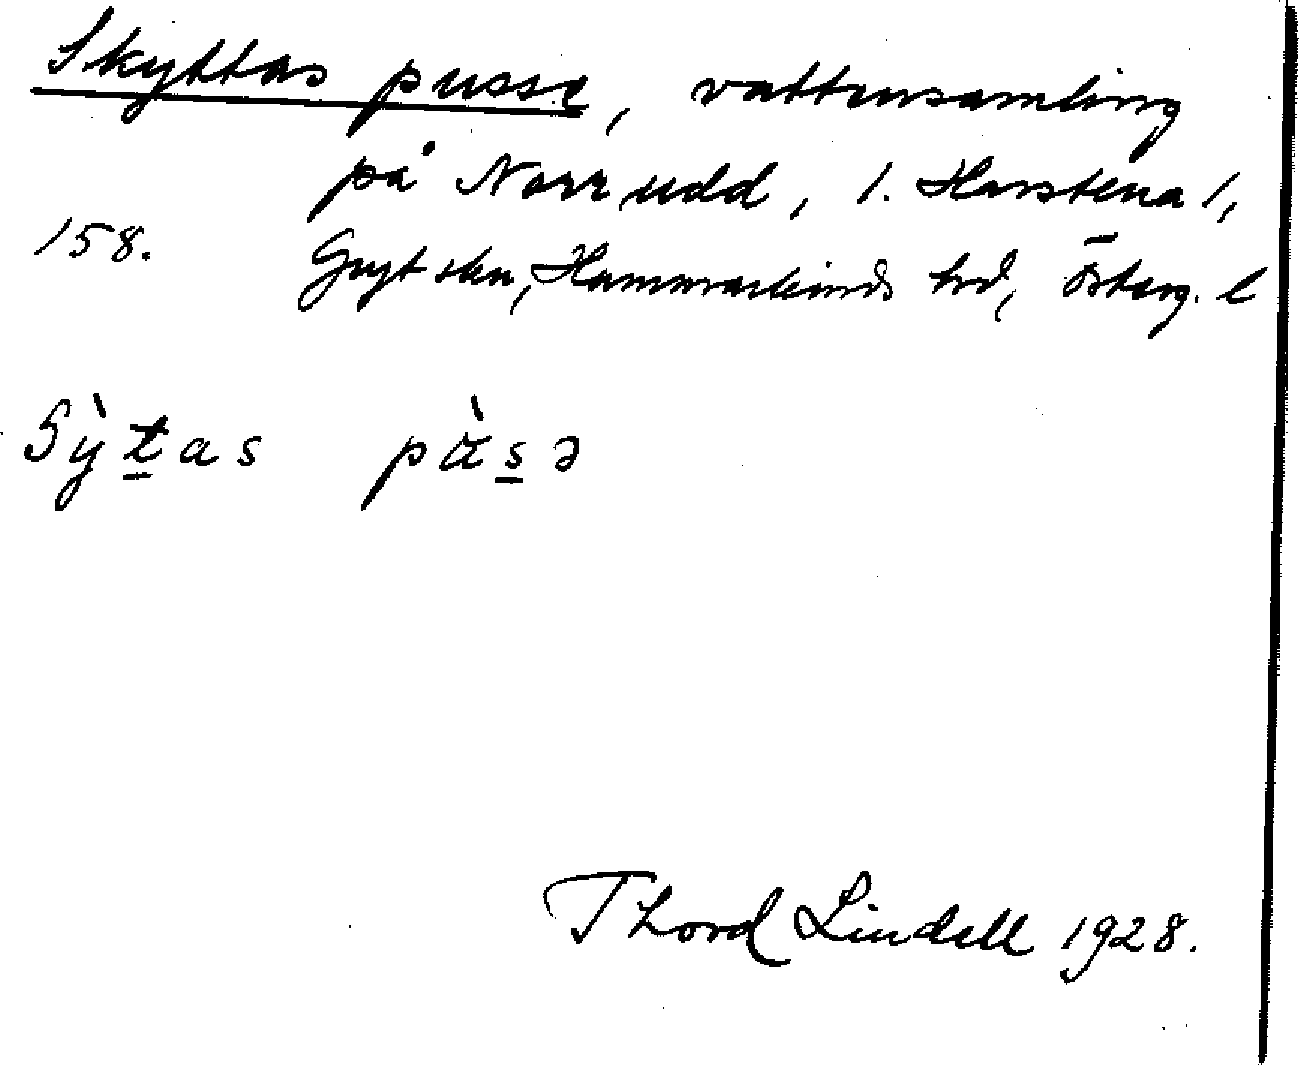 Skyttas pusse, vattensamling
på Norrudd, l. Harstena 1,
158. Gryt skn, Hammarkinds hd, Österg. l
Sỳtas pàsə
Thord Lindell 1928.